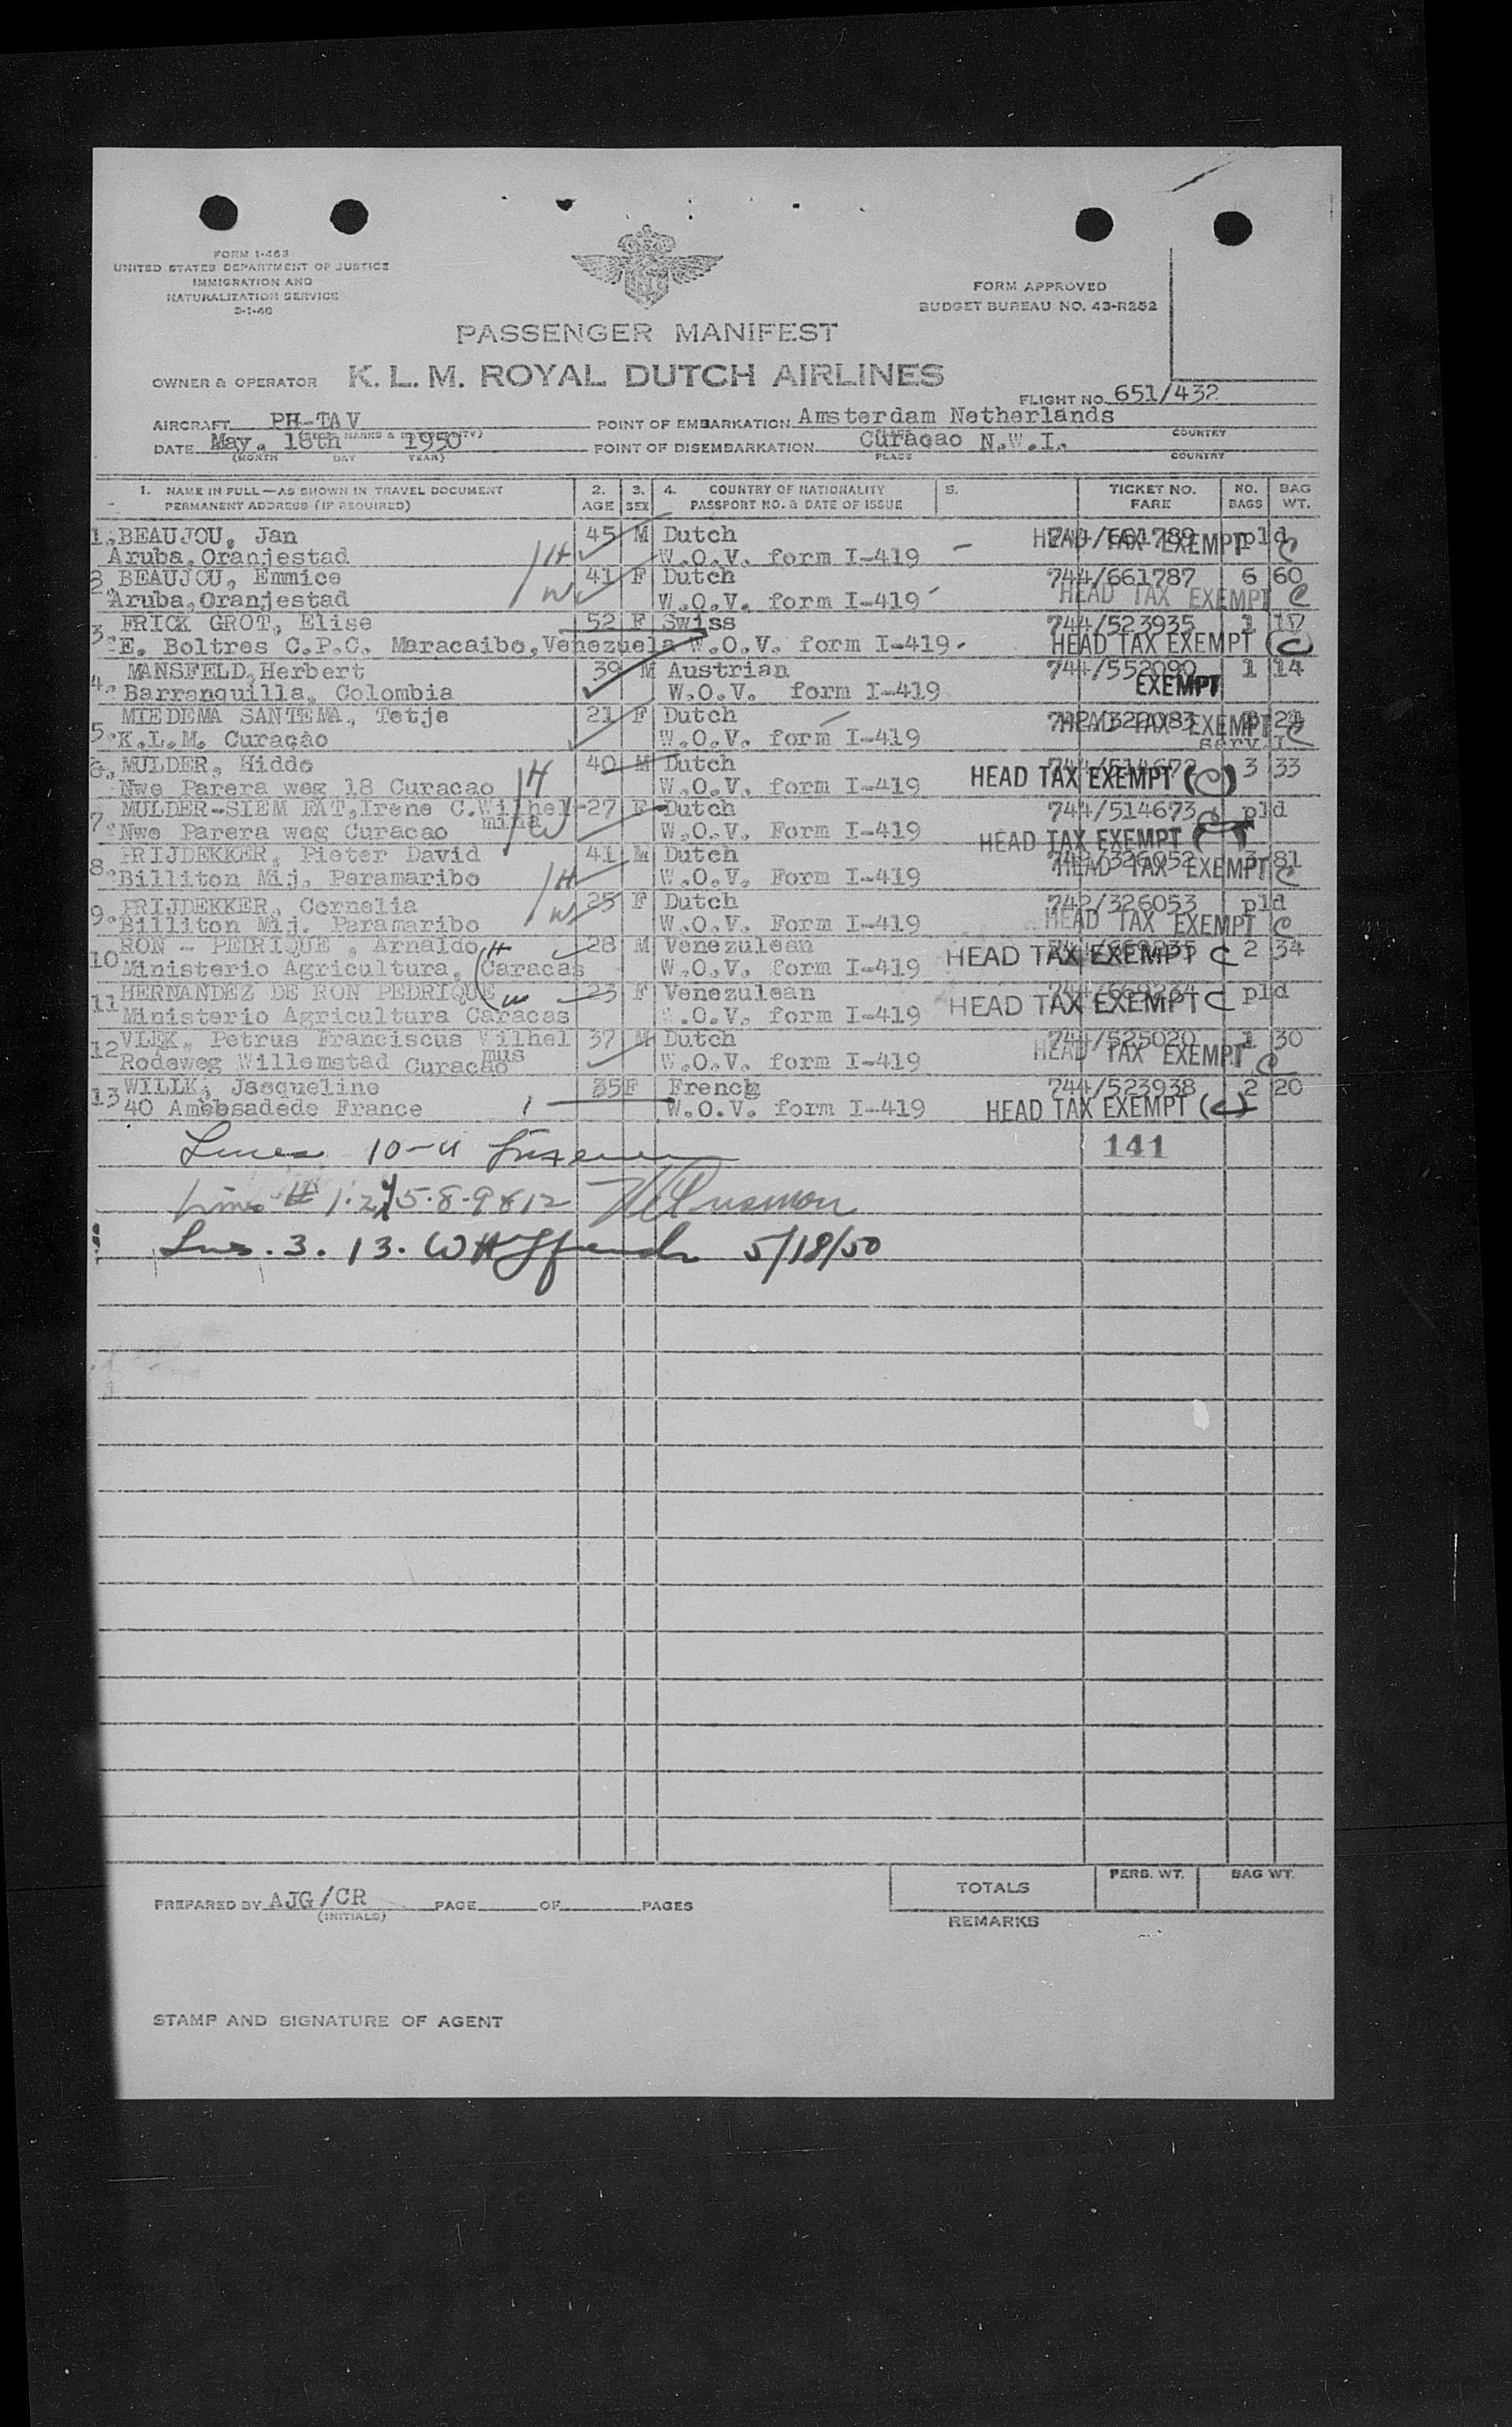 FORM I-463
UNITED STATES DEPARTMENT OF JUSTICE
IMMIGRATION AND
NATURALIZATION SERVICE
FORM APPROVED
BUDGET BUREAU NO. 43-R252
PASSENGER MANIFEST
OWNER & OPERATOR K. L. M. ROYAL DUTCH AIRLINES
FLIGHT NO. 651/432
AIRCRAFT PH-TAV POINT OF EMBARKATION Amsterdam Netherlands
DATE May. 18th 1950 POINT OF DISEMBARKATION Curaçao N.W.I.
(MONTH DAY YEAR) PLACE COUNTRY
1. NAME IN FULL—AS SHOWN IN TRAVEL DOCUMENT 2. 3. 4. COUNTRY OF NATIONALITY 5. TICKET NO. NO. BAG
PERMANENT ADDRESS (IF REQUIRED) AGE SEX PASSPORT NO. & DATE OF ISSUE FARE BAGS WT.
1. BEAUJOU, Jan 45 M Dutch 744/661788 pld
Aruba,Oranjestad H W.O.V. form I-419 HEAD TAX EXEMPT C
2. BEAUJOU, Emmice 41 F Dutch 744/661787 6 60
Aruba,Oranjestad W W.O.V. form I-419 HEAD TAX EXEMPT C
3. FRICK GROT, Elise 52 F Swiss 744/523935 1 17
E. Boltres C.P.C. Maracaibo,Venezuela W.O.V. form I-419. HEAD TAX EXEMPT (C)
4. MANSFELD,Herbert 39 M Austrian 744/552090 1 14
Barranquilla, Colombia W.O.V. form I-419 EXEMPT
5. MIEDEMA SANTEMA, Tetje 21 F Dutch 742/322083 21
K.L.M. Curaçao W.O.V. form I-419 HEAD TAX EXEMPT C
6. MULDER, Hiddo 40 M Dutch 744/514672 3 33
Nwe Parera weg 18 Curacao H W.O.V. form I-419 HEAD TAX EXEMPT (C)
7. MULDER-SIEM FAT,Irene C.Wilhel- 27 F Dutch 744/514673 pld
mina
Nwe Parera weg Curacao W W.O.V. Form I-419 HEAD TAX EXEMPT
8. PRIJDEKKER, Pieter David 41 M Dutch 742/326052 3 81
Billiton Mij. Paramaribo H W.O.V. Form I-419 HEAD TAX EXEMPT C
9. PRIJDEKKER, Cornelia 25 F Dutch 742/326053 pld
Billiton Mij. Paramaribo W W.O.V. Form I-419 HEAD TAX EXEMPT C
10 RON - PEDRIQUE , Arnaldo H 28 M Venezulean 744/669235 2 34
Ministerio Agricultura, Caracas W.O.V. form I-419 HEAD TAX EXEMPT C
11 HERNANDEZ DE RON PEDRIQUE W 23 F Venezulean 744/669234 pld
Ministerio Agricultura Caracas W.O.V. form I-419 HEAD TAX EXEMPT C
12 VLEK, Petrus Franciscus Wilhel 37 M Dutch 744/525020 1 30
mus
Rodeweg Willemstad Curacao W.O.V. form I-419 HEAD TAX EXEMPT C
13 WILLK, Jacqueline 35 F French 744/523938 2 20
40 Ambbsadede France 1 W.O.V. form I-419 HEAD TAX EXEMPT (C)
Lines 10-11 141
Lines # 1.2.4 5.8.9 & 12
Lns. 3. 13. 5/18/50
PREPARED BY AJG/CR PAGE OF PAGES
(INITIALS)
TOTALS PERS. WT. BAG WT.
REMARKS
STAMP AND SIGNATURE OF AGENT